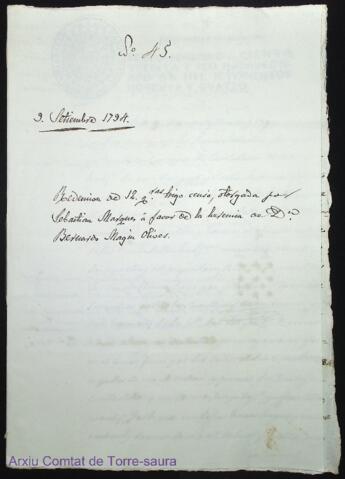 Nº 45.
9. Setiembre 1794.
Redencion de 12. qras trigo censo, otorgada por
Sebastian Marques à favor de la herencia de Dn
Bernardo Magin Olives.
Arxiu Comtat de Torre-saura